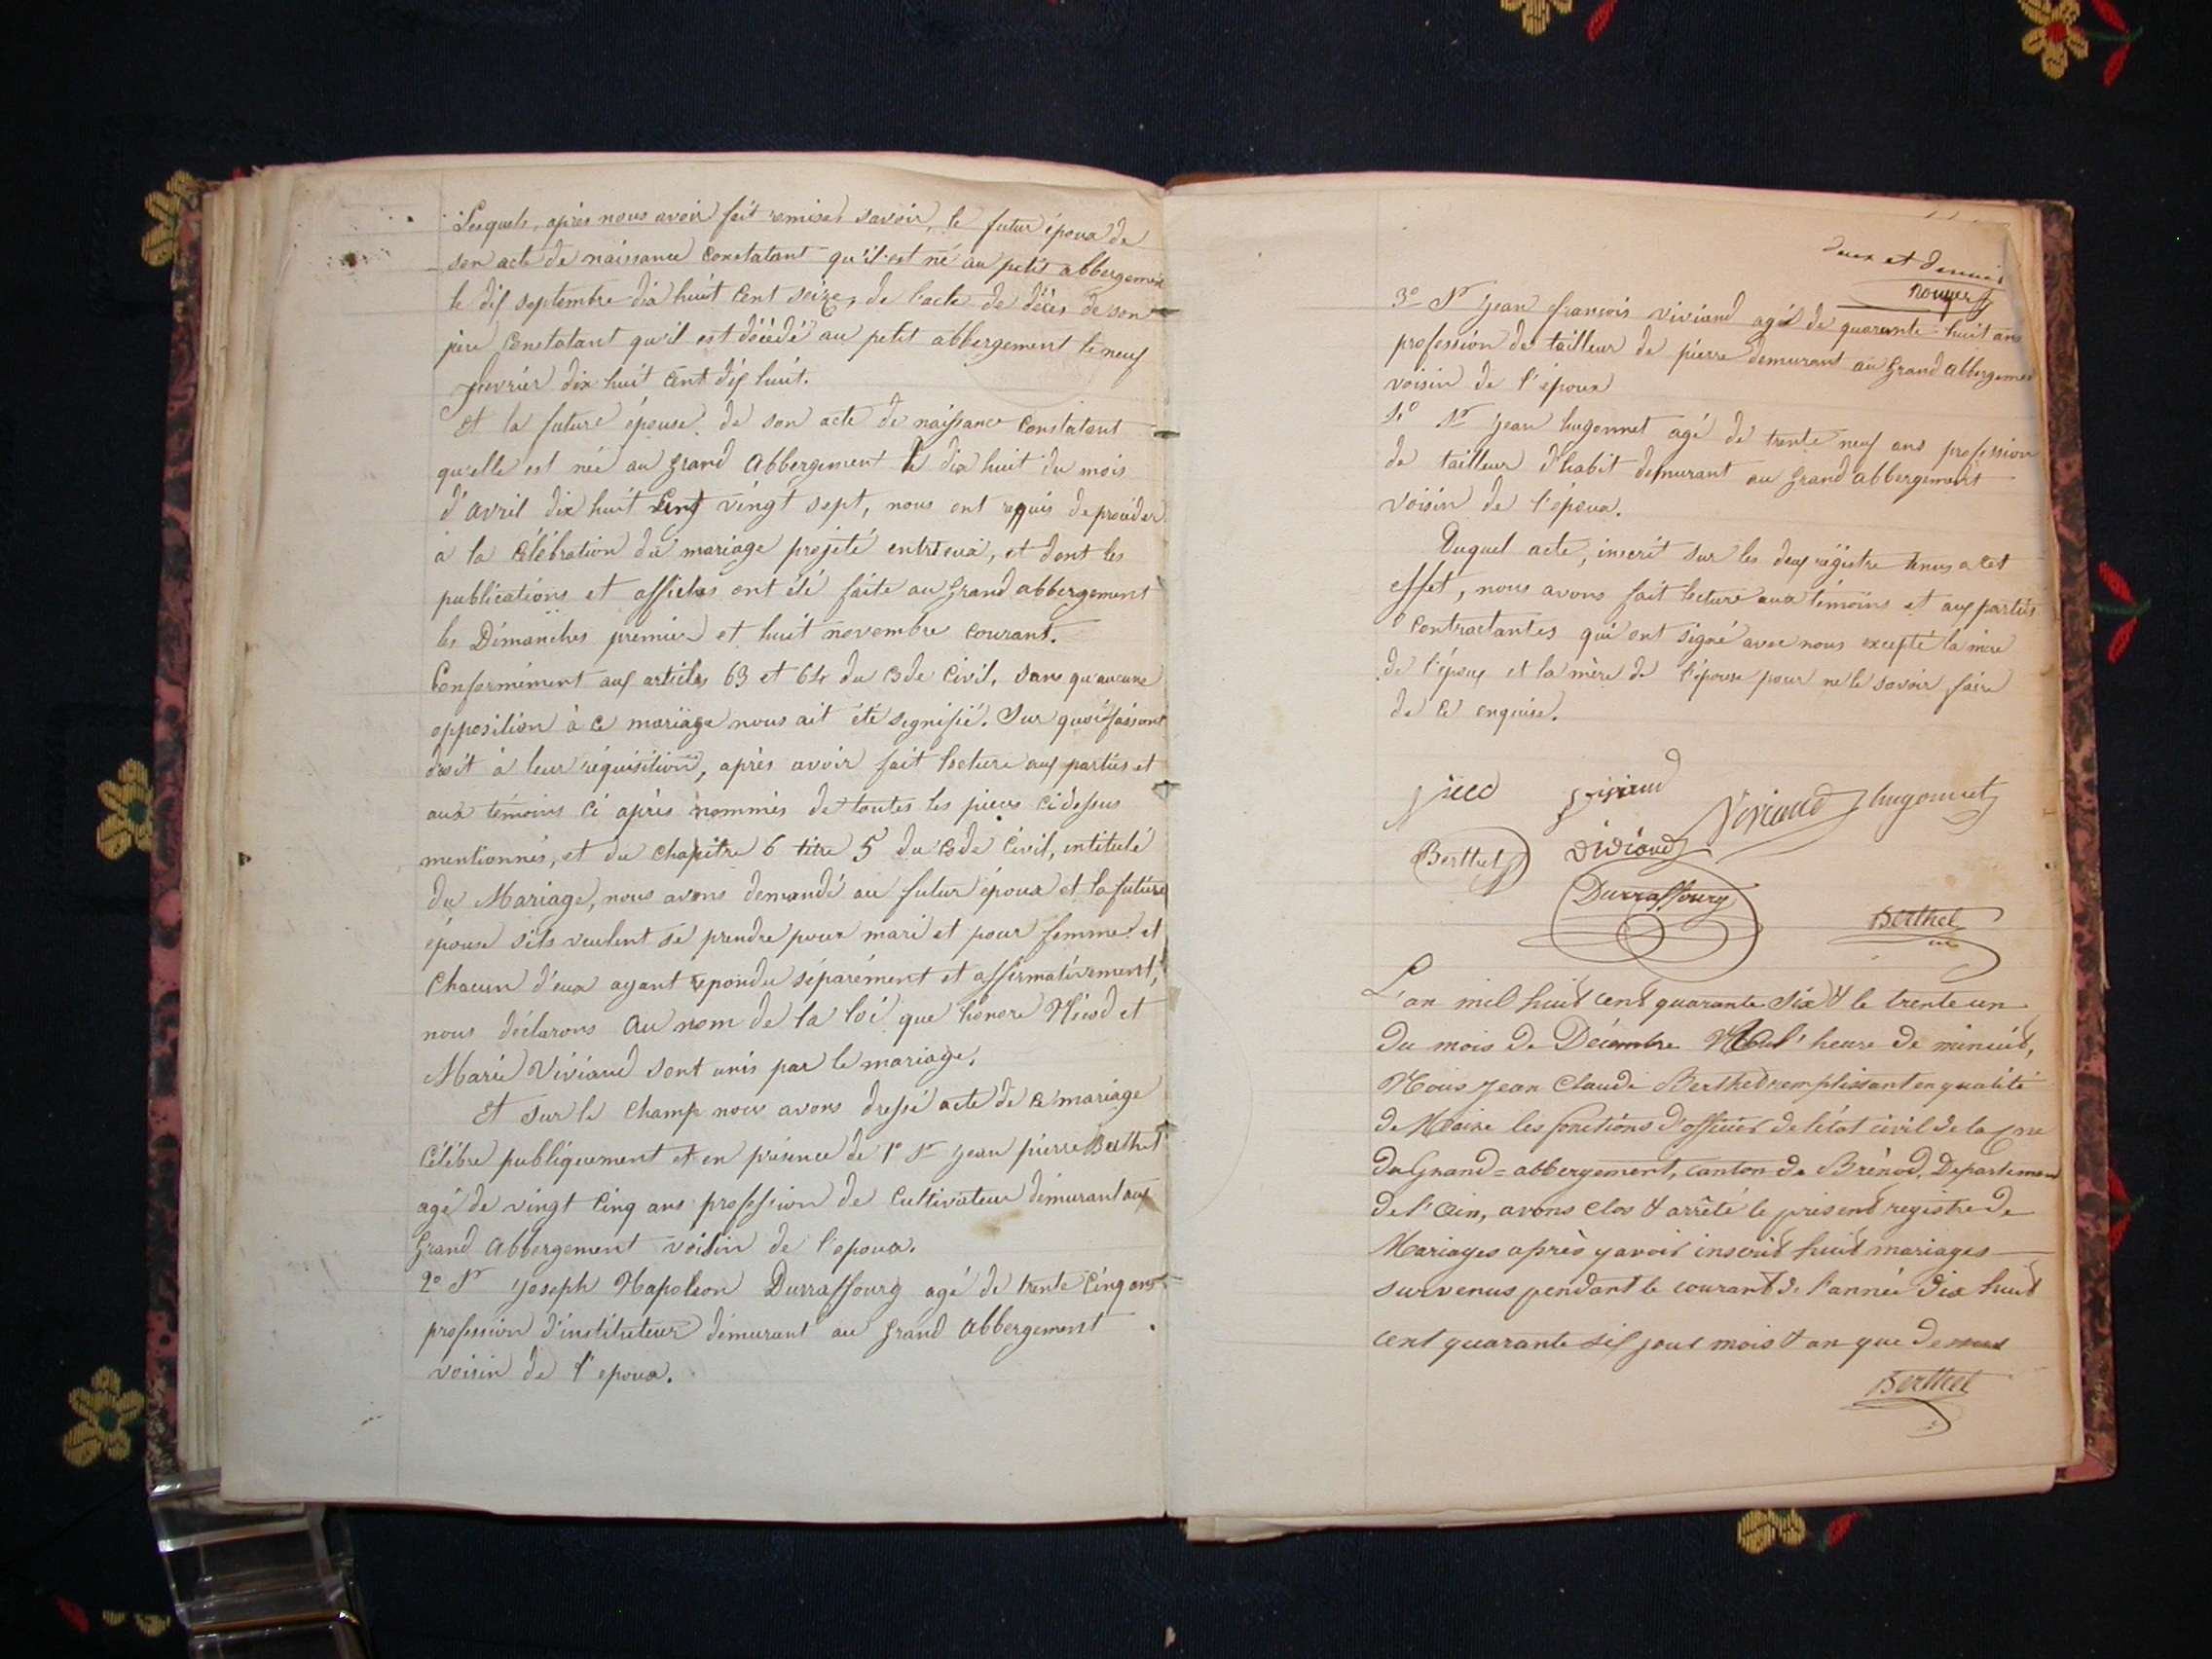 Lesquels, après nous avoir fait remise, savoir, le futur époux de
son acte de naissance constatant qu'il est né au petit abbergement
le dix septembre dix huit cent seize, de l'acte de décès de son
père constatant qu'il est décédé au petit abbergement le neuf
fevrier dix huit cent dix huit.
Et la future épouse de son acte de naissance constatant
qu'elle est née au grand abbergement le dix huit du mois
d'avril dix huit cent vingt sept, nous ont requis de procéder
à la célébration du mariage projeté entr'eux, et dont les
publications et affiches ont été faite au grand abbergement
les Dimanches premier et huit novembre courant.
Conformément aux articles 63 et 64 du code civil, sans qu'aucune
opposition à ce mariage nous ait été signifié. Sur quoi faisant
droit à leur réquisition, après avoir fait lecture aux parties et
aux témoins ci après nommés de toutes les pieces ci dessus
mentionnés, et du chapitre 6 titre 5 du code civil, intitulé
du Mariage, nous avons demandé au futur époux et la future
épouse s'ils veulent se prendre pour mari et pour femme. et
chacun d'eux ayant repondu séparément et affirmativement,
nous déclarons au nom de la loi que honore Nicod et
Marie Viviand sont unis par le mariage.
Et sur le champ nous avons dressé acte de ce mariage
célébre publiquement et en présence de 1° Sr Jean pierre Berthet
agé de vingt cinq ans profession de cultivateur démurant au
grand abbergement voisin de l'epoux.
2° Sr Joseph Napoléon Durraffourg agé de trente cinq ans
profession d'instituteur démurant au grand abbergement
voisin de l'epoux.
deux et dernier
Rouyer
3° Sr Jean françois Viviand agé de quarante-huit ans
profession de tailleur de pierre demurant au grand abbergement
voisin de l'époux
4° Sr Jean hugonnet agé de trente neuf ans profession
de tailleur d'habit demurant au grand abbergement
voisin de l'époux.
Duquel acte, inscrit sur les deux régistre tenus a cet
effet, nous avons fait lecture aux témoins et aux parties
contractantes qui ont signé avec nous excepté la mère
de l'époux et la mère de l'épouse pour ne le savoir faire
de ce enquise.
Nicod Viviand Viviand hugonnet
Berthet Viviand
Durraffourg
Berthet
L'an mil huit cent quarante six & le trente un
du mois de Décembre à l'heure de minuit,
Nous Jean Claude Berthet remplissant en qualité
de Maire les fonctions d'officier de l'état civil de la Cne
du Grand=abbergement, canton de Brénod, Departement
de l'Ain, avons clos & arrêté le présent registre de
Mariages après y avoir inscrit huit mariages
survenus pendant le courant de l'année dix huit
cent quarante six jour mois & an que dessus
Berthet